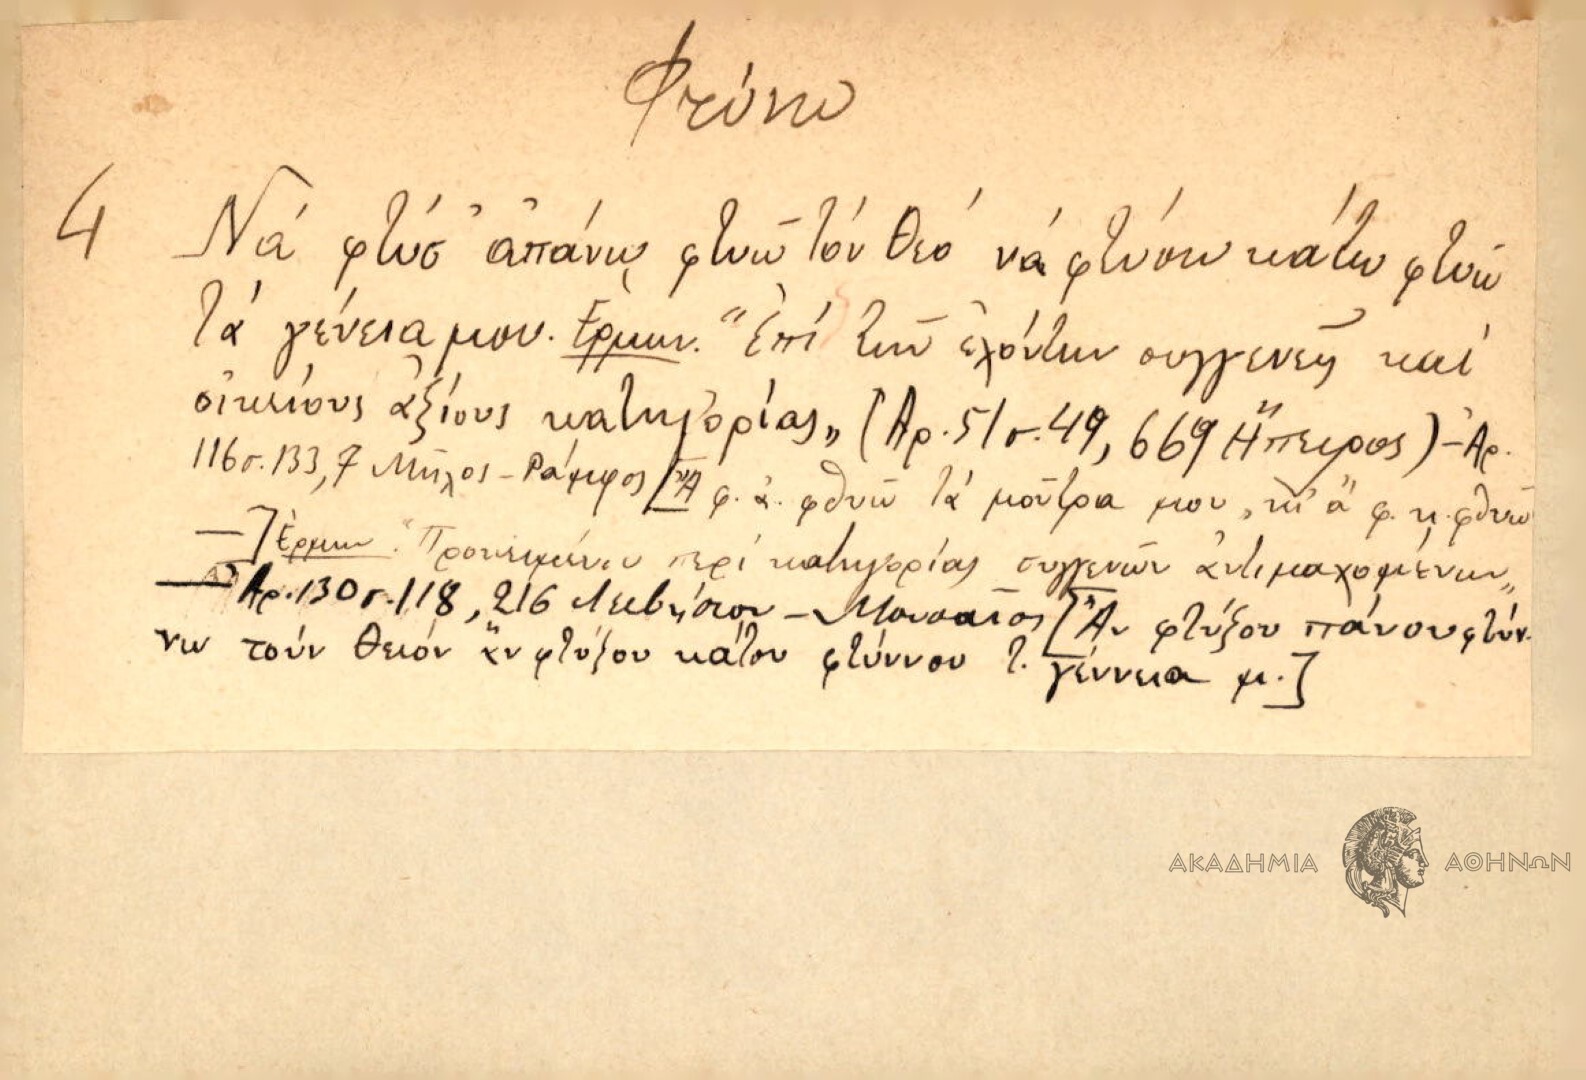 Φτύνω
4 Νά φτύσ' ἀπάνω φτυῶ τόν θεό νά φτύσω κάτω φτυῶ
τά γένεια μου. Ἑρμην. "Ἐπί τῶν ἐχόντων συγγενεῖς καί
οἰκείους ἀξίους κατηγορίας„ (Ἀρ. 51 σ. 49, 669 Ἤπειρος) - Ἀρ.
116 σ. 133, 7 Μῆλος - Ράμφος [Ἄ φ. ἀ. φθυῶ τά μοῦτρα μου, κι' ἄ φ. κ. φθυῶ
—] Ἑρμην. "Προκειμένου περί κατηγορίας συγγενῶν ἀντιμαχομένων„
— Ἀρ. 130 σ. 118, 216 Λεκβήσιον - Μουσαῖος [Ἄν φτύξου πάνου φτύν-
νω τούν θειόν ἄν φτύξου κάτου φτύννου τ. γέννεια μ.]
ΑΚΑΔΗΜΙΑ ΑΘΗΝΩΝ